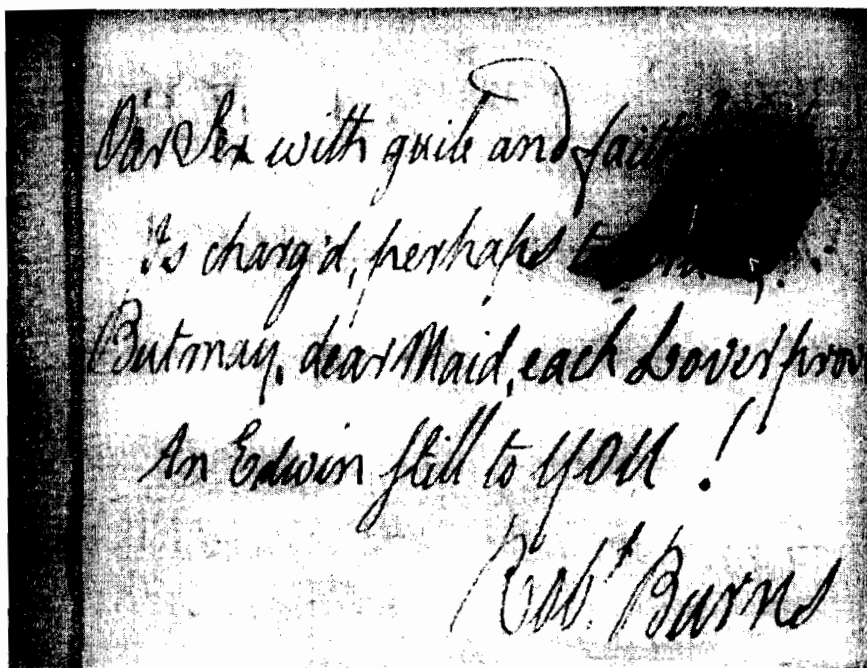 Our Sex with guile and
Is charg'd, perhaps
But may, dear Maid, each Lover prov
An Edwin still to YOU!
Robt Burns